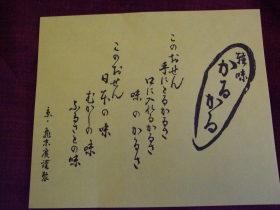 雅味
かるかる
このおせん
手にとるかるさ
口に入れるかるさ
味のかるさ
このおせん
日本の味
むかしの味
ふるさとの味
京・
謹製